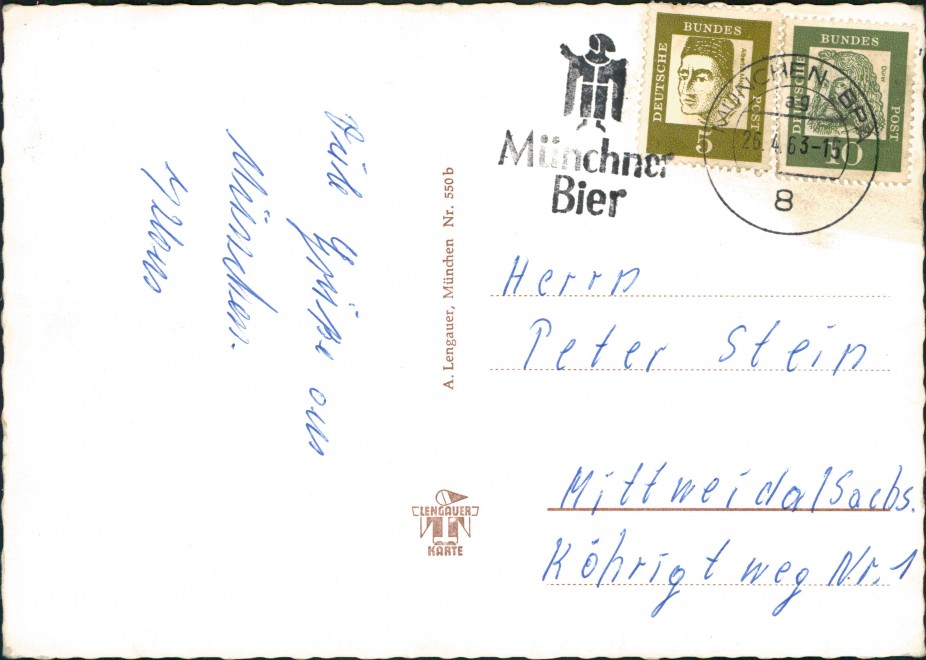 Viele Grüße aus
München.
A. Lengauer, München Nr. 550 b
LENGAUER
KARTE
Münchner
Bier
DEUTSCHE BUNDES POST
5
DEUTSCHE BUNDES POST
Dürer
MÜNCHEN, BPA
ag
26.4.63-15
8
Herrn
Peter Stein
Mittweida/Sachs.
Köhrigtweg Nr. 1